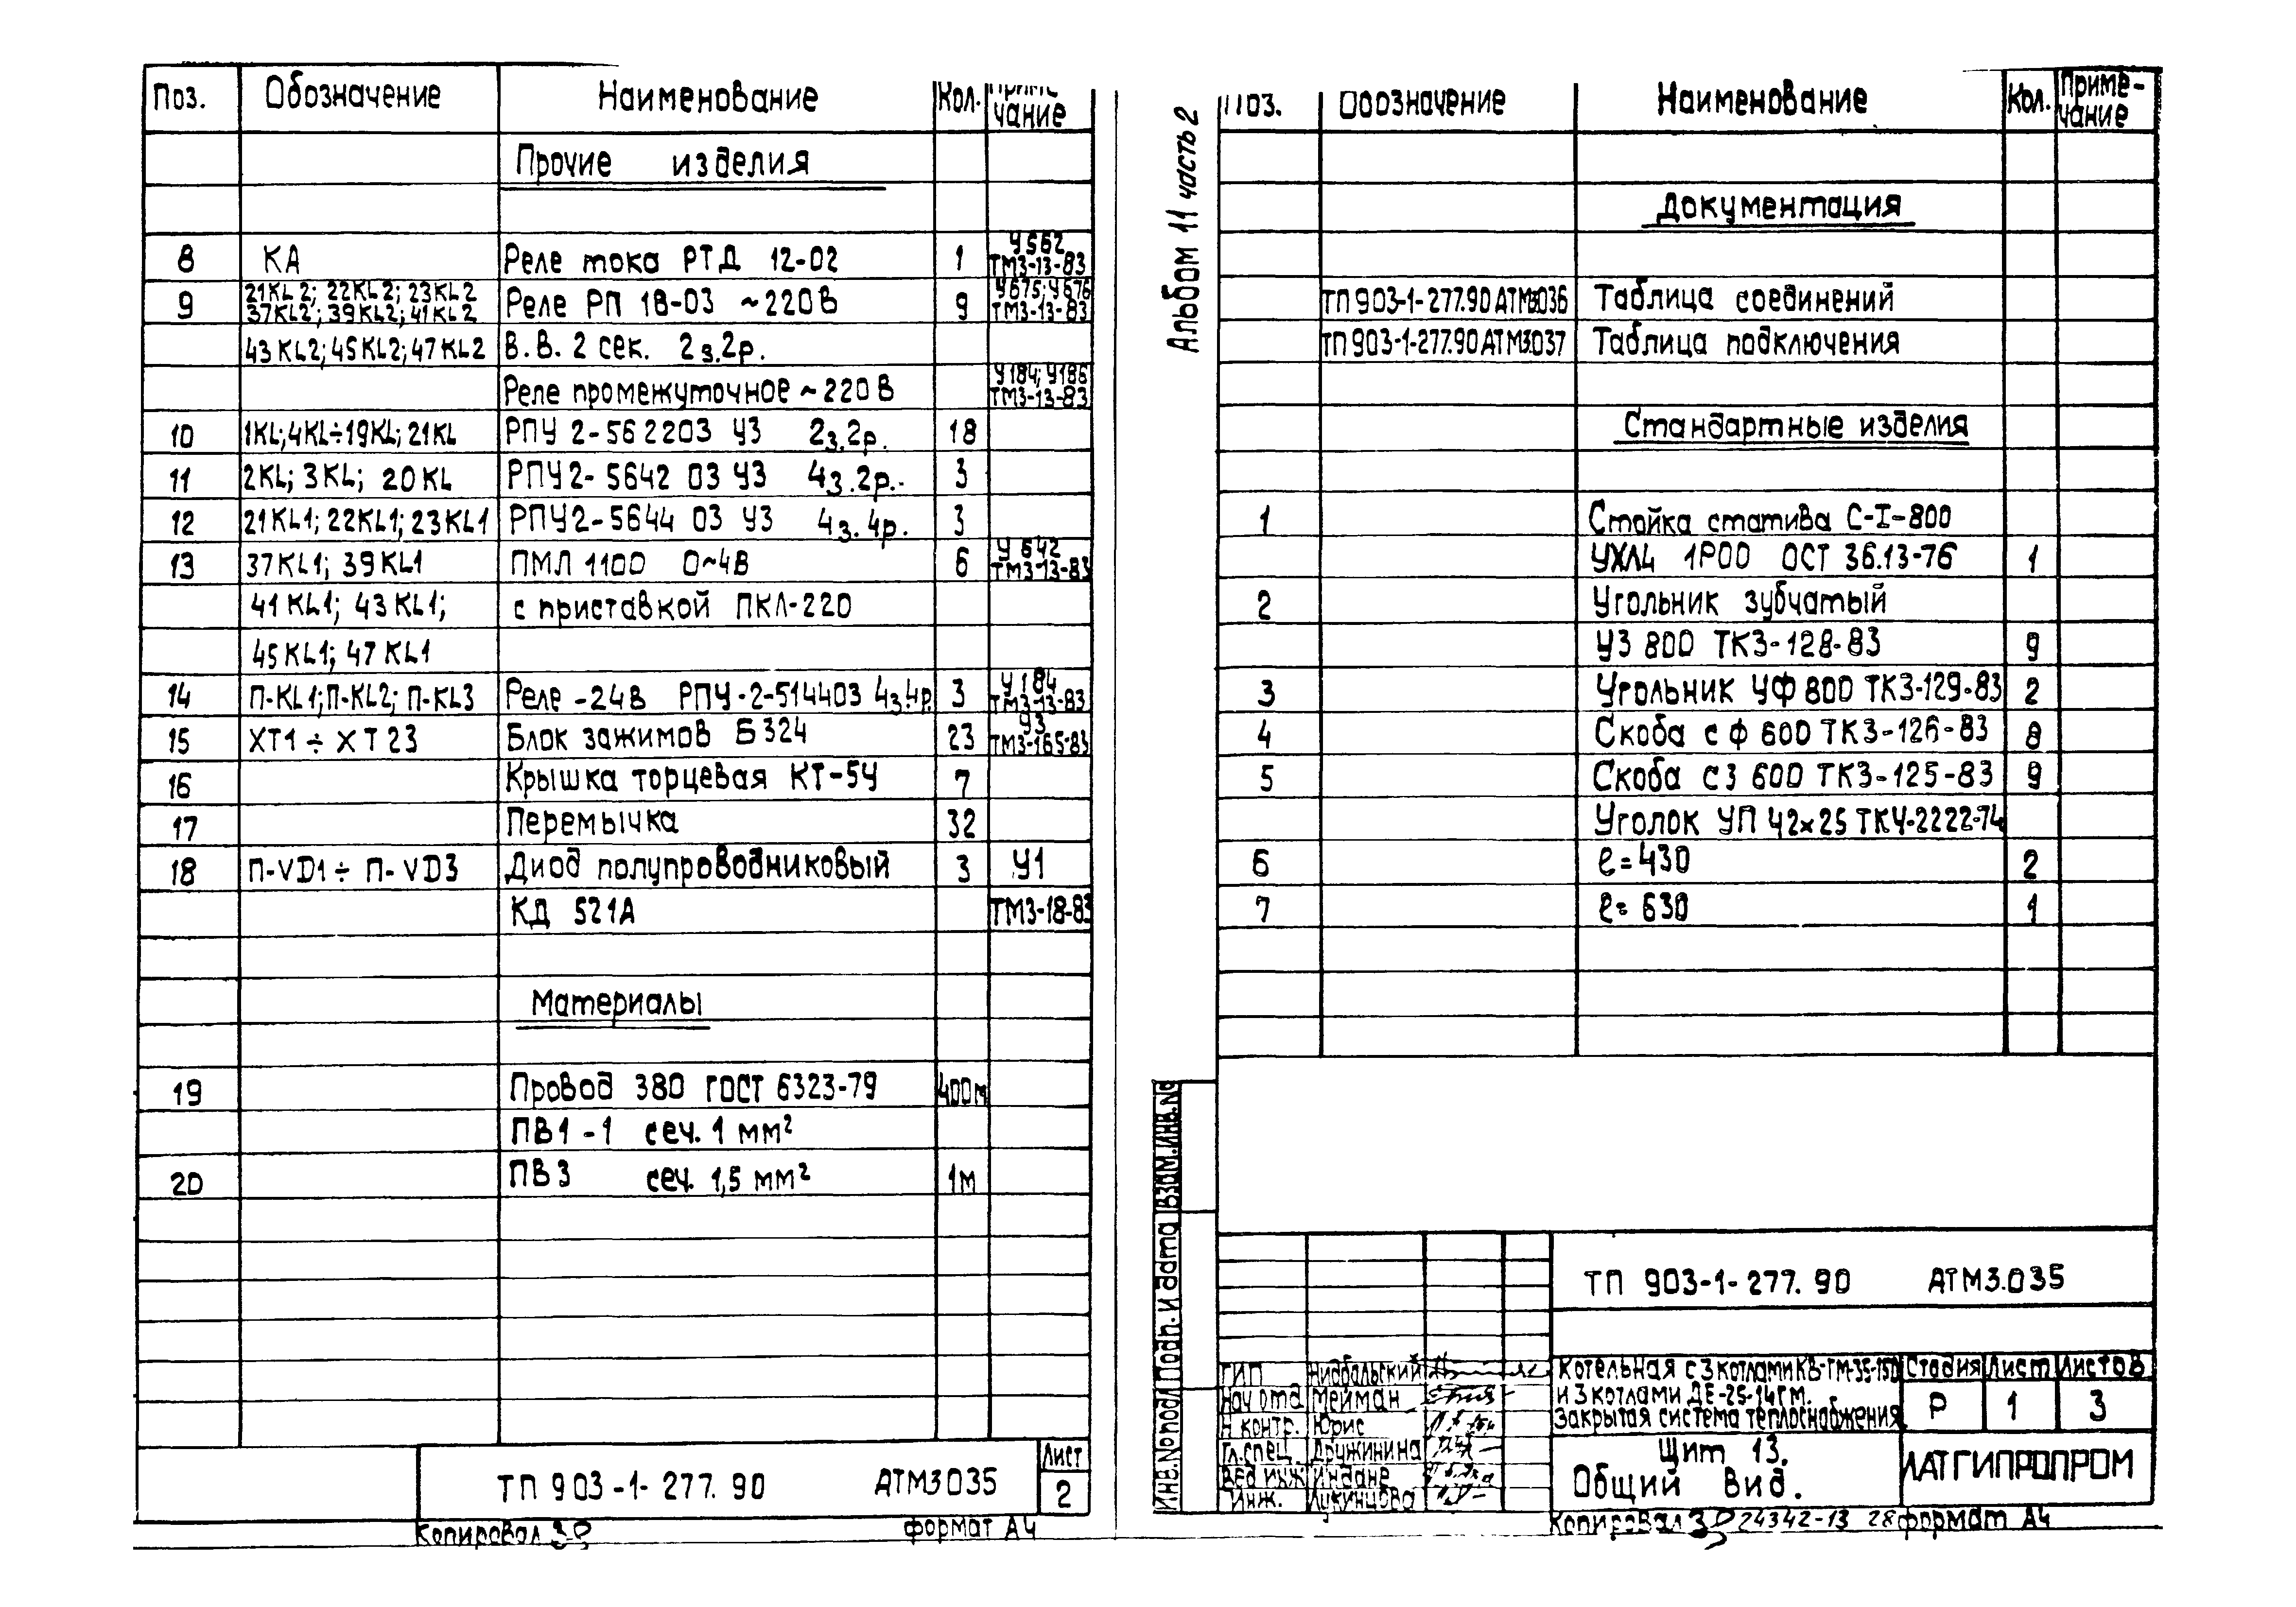 Поз. Обозначение Наименование Кол. Приме-
чание
Прочие изделия
8 КА Реле тока РТД 12-02 1 У562
ТМ3-13-83
9 21KL2; 22KL2; 23KL2 Реле РП 18-03 ~220В 9 У675; У676
37KL2; 39KL2; 41KL2 ТМ3-13-83
43KL2; 45KL2; 47KL2 В.В. 2 сек. 2з.2р.
Реле промежуточное ~220В У184; У186
ТМ3-13-83
10 1KL;4KL÷19KL;21KL РПУ 2-562203 У3 2з.2р. 18
11 2KL; 3KL; 20KL РПУ2-5642 03 У3 4з.2р. 3
12 21KL1; 22KL1; 23KL1 РПУ2-5644 03 У3 4з.4р. 3
13 37KL1; 39KL1 ПМЛ 1100 0~4В 6 У642
ТМ3-13-83
41KL1; 43KL1; с приставкой ПКЛ-220
45KL1; 47KL1
14 П-KL1;П-KL2; П-KL3 Реле -24В РПУ-2-514403 4з.4р. 3 У184
ТМ3-13-83
15 ХТ1 ÷ ХТ23 Блок зажимов Б324 23 У3
ТМ3-165-83
16 Крышка торцевая КТ-5У 7
17 Перемычка 32
18 П-VD1 ÷ П-VD3 Диод полупроводниковый 3 У1
КД 521А ТМ3-18-83
Материалы
19 Провод 380 ГОСТ 6323-79 400м
ПВ1-1 сеч. 1 мм²
20 ПВ3 сеч. 1,5 мм² 1м
ТП 903-1-277.90 АТМ3035 Лист
2
Копировал формат А4
Альбом 11 часть 2
Поз. Обозначение Наименование Кол. Приме-
чание
Документация
ТП903-1-277.90АТМ3.036 Таблица соединений
ТП903-1-277.90АТМ3.037 Таблица подключения
Стандартные изделия
1 Стойка статива С-I-800
УХЛ4 1Р00 ОСТ 36.13-76 1
2 Угольник зубчатый
УЗ 800 ТК3-128-83 9
3 Угольник УФ 800 ТК3-129-83 2
4 Скоба сф 600 ТК3-126-83 8
5 Скоба СЗ 600 ТК3-125-83 9
Уголок УП 42х25 ТКУ-2222-74
6 ℓ=430 2
7 ℓ=630 1
ИНВ.№ подл Подп. и дата ВЗАМ.ИНВ.№
ТП 903-1-277.90 АТМ3.035
ГИП Нидбальский
Нач отд Мейман
Н контр. Юрис
Гл.спец. Дружинина
Вед инж Индане
Инж. Лукунцова
Котельная с 3 котлами КВ-ГМ-35-150
и 3 котлами ДЕ-25-14ГМ.
Закрытая система теплоснабжения
Стадия Лист Листов
Р 1 3
Щит 13.
Общий вид.
ЛАТГИПРОПРОМ
Копировал 24342-13 28 формат А4